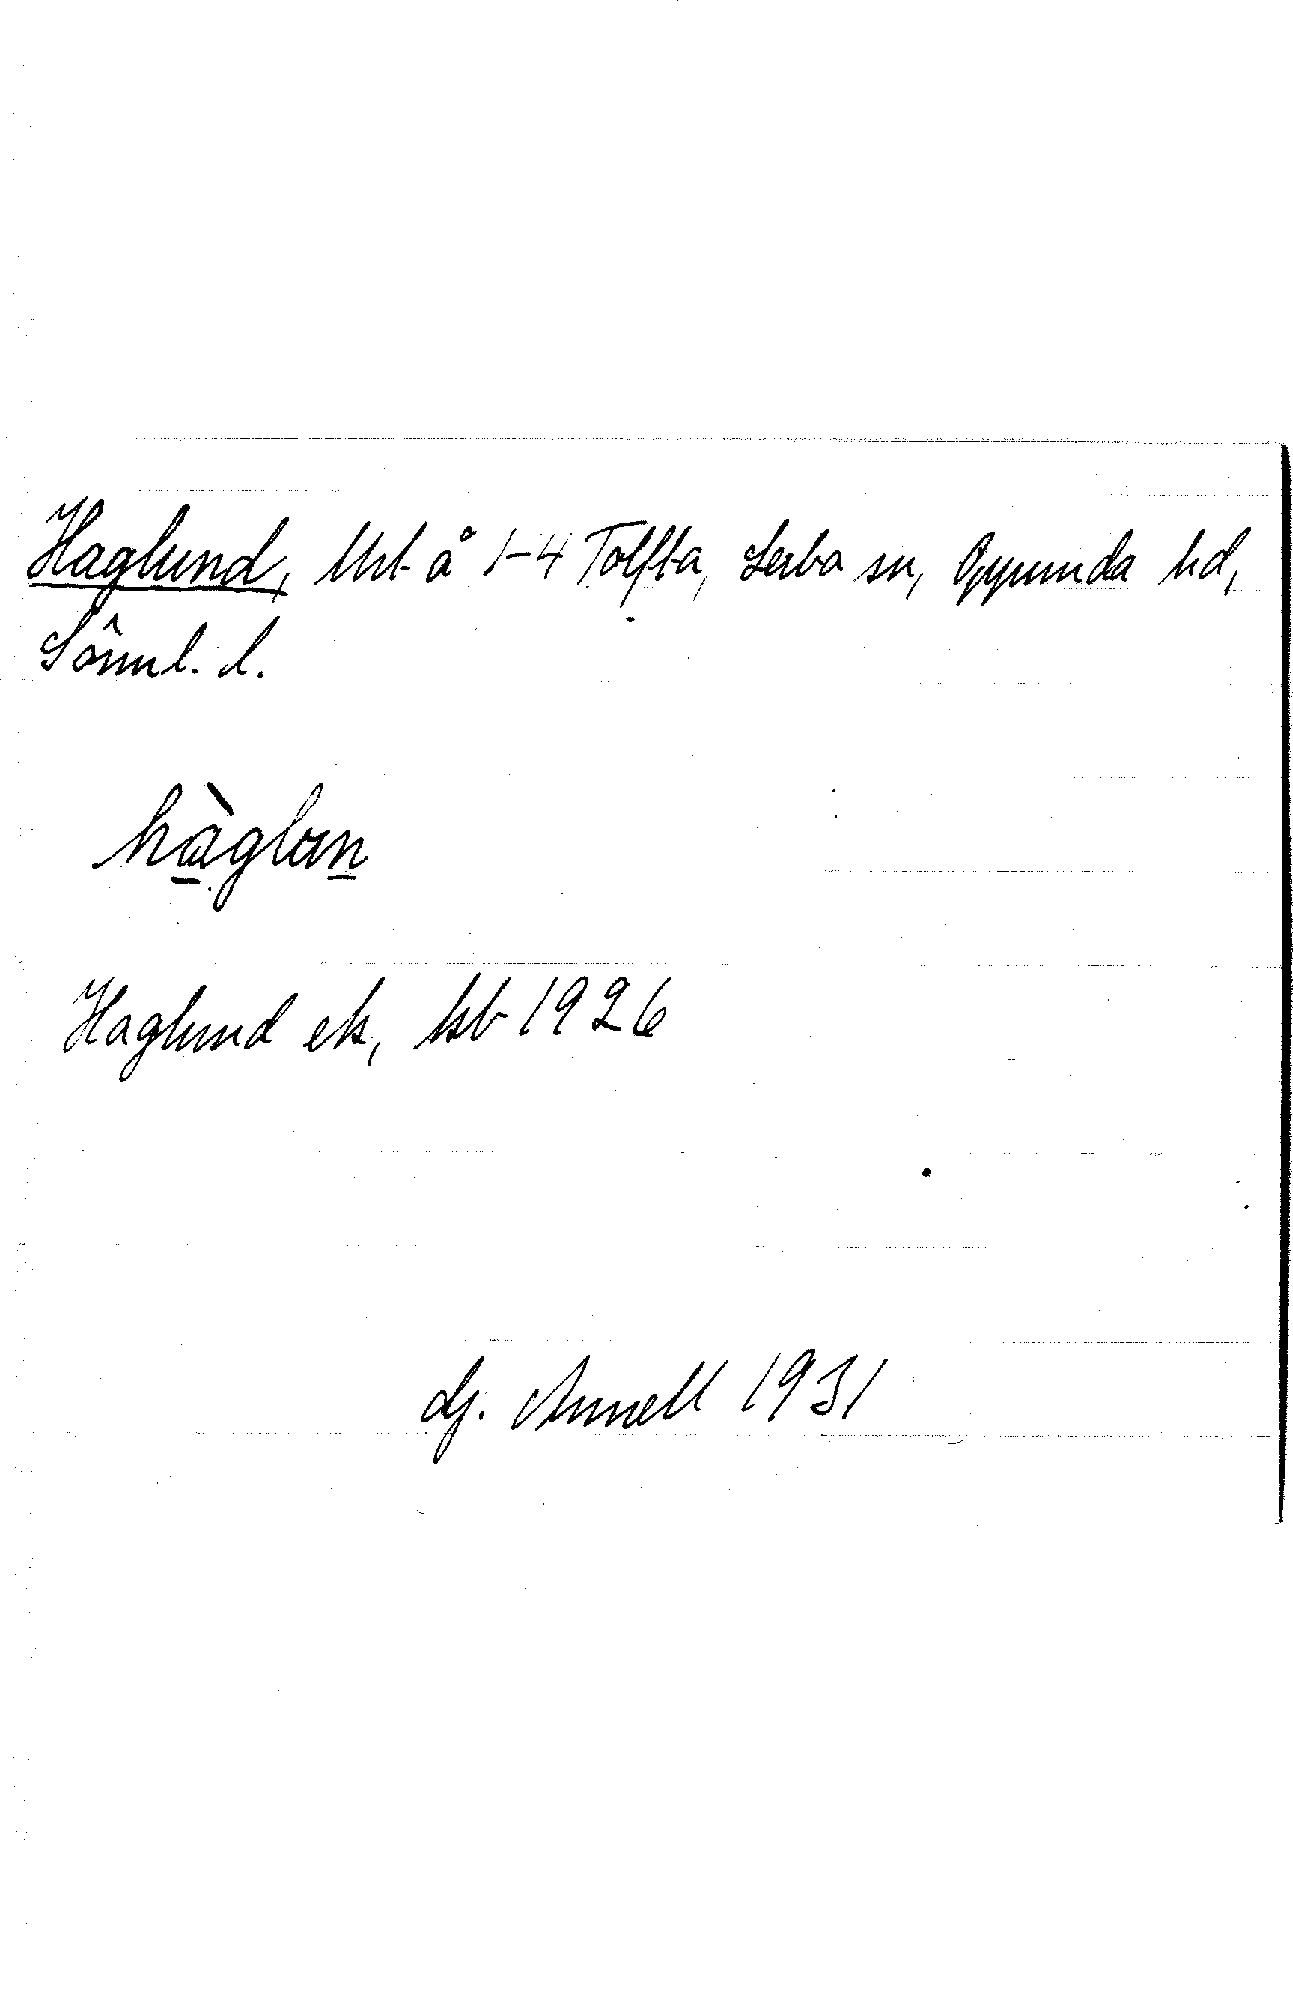 Haglund, lht å 1-4 Tolfta, Lerbo sn, Oppunda hd,
Söml. l.
hàglun
Haglund ek, kb 1926
Gj. Annell 1931